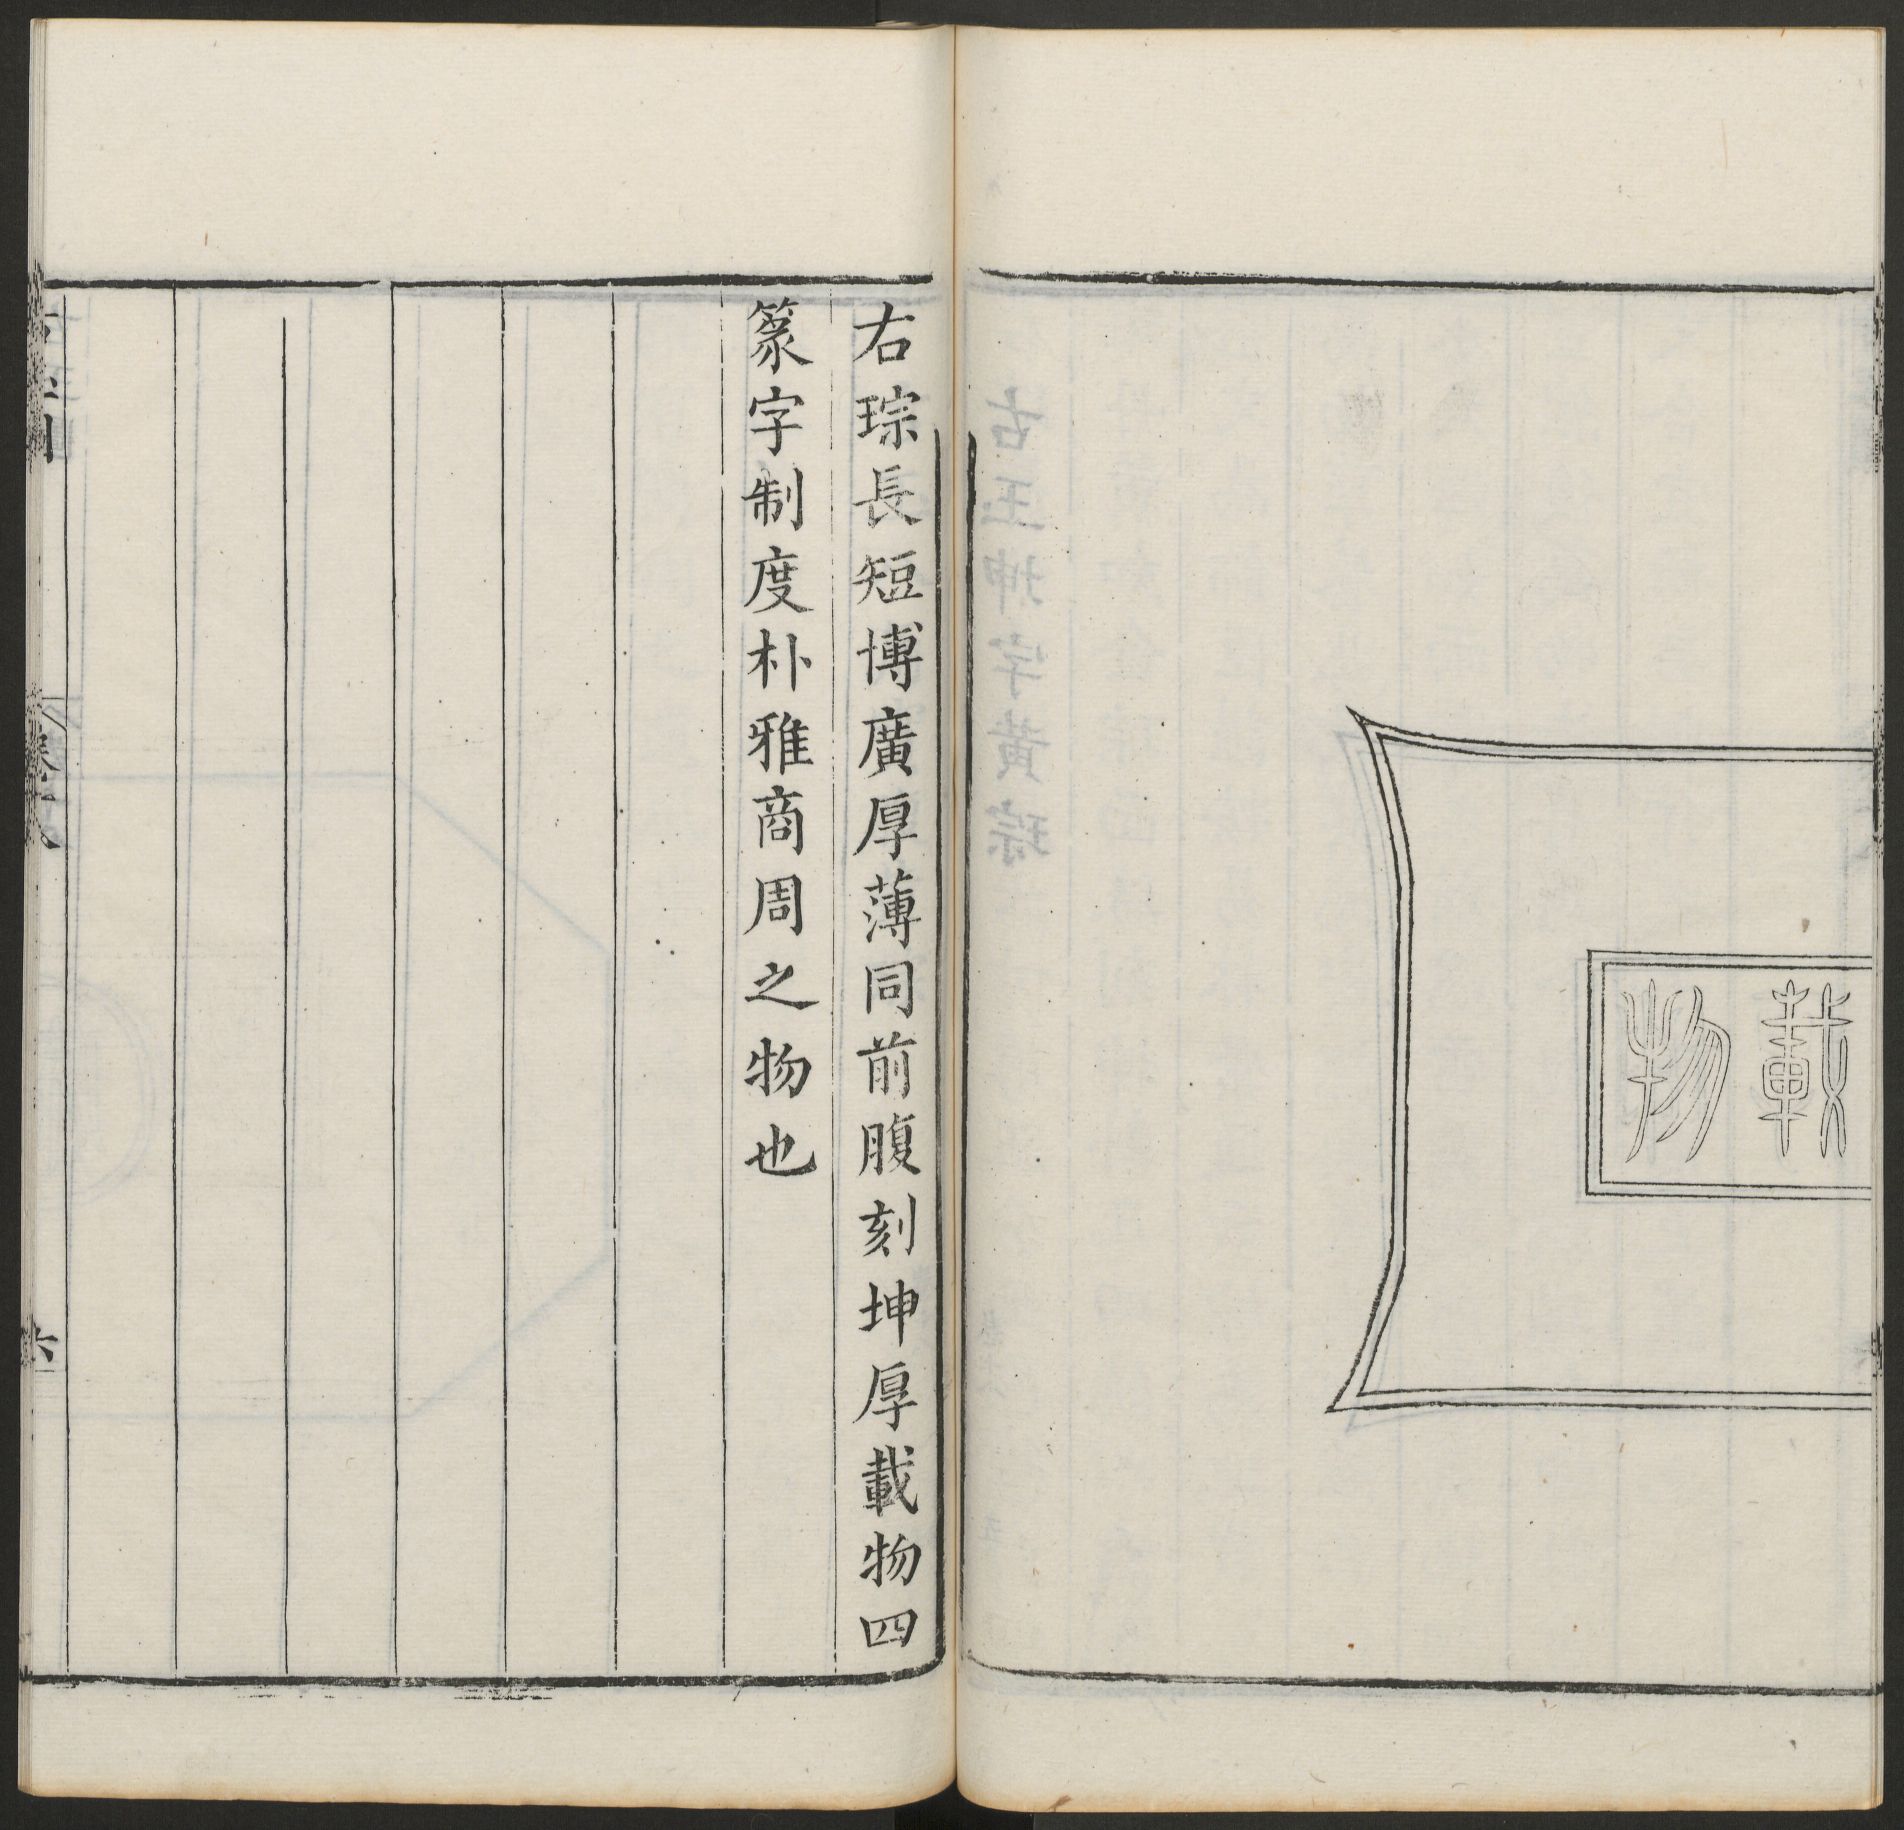 載
物
右琮長短博廣厚薄同前腹刻坤厚載物四
篆字制度朴雅商周之物也
六